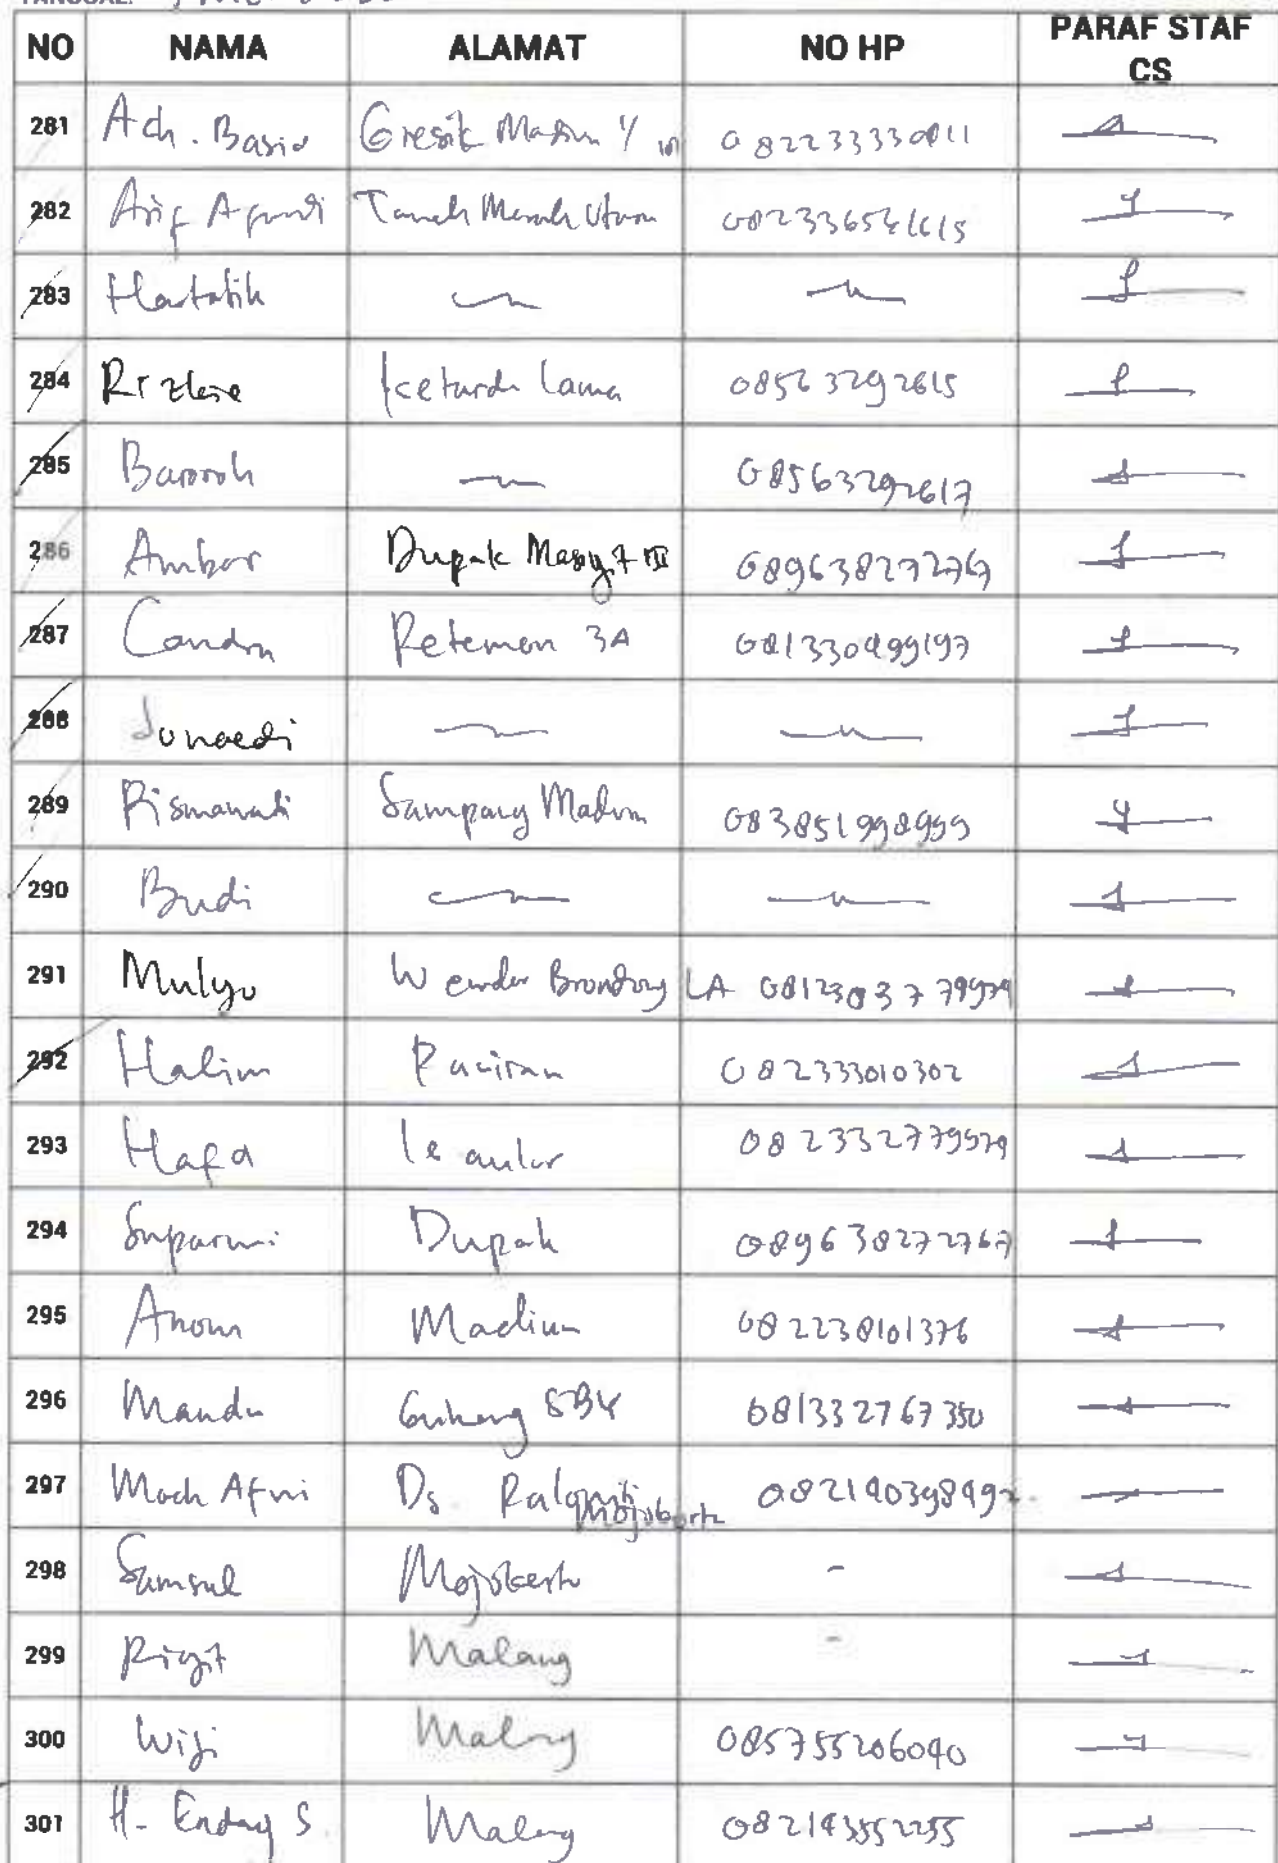 NO NAMA ALAMAT NO HP PARAF STAF CS
281 Ach. Basir Gresik 082233330811
282 Arif Tanah Merah Utara
283 Hartatik
284 Lama 08563292615
285 Baroroh 08563292617
286 Ambar Dupak 089638272767
287 Candra Petemon 3A 081330499197
288 Junaedi
289 Rismawati Sampang Madura 083851998999
290 Budi
291 Mulyo Brondong LA
292 Halim Paciran 082333010302
293 Hafa 082332779579
294 Suparmi Dupak 089638272767
295 Anom Madiun 082238101376
296 Mandu 081332767350
297 Moch Ds. Mojokerto 082140398492
298 Samsul Mojokerto -
299 Malang -
300 Wiji Malang 085755206040
301 H. Endang S. Malang 082143552255